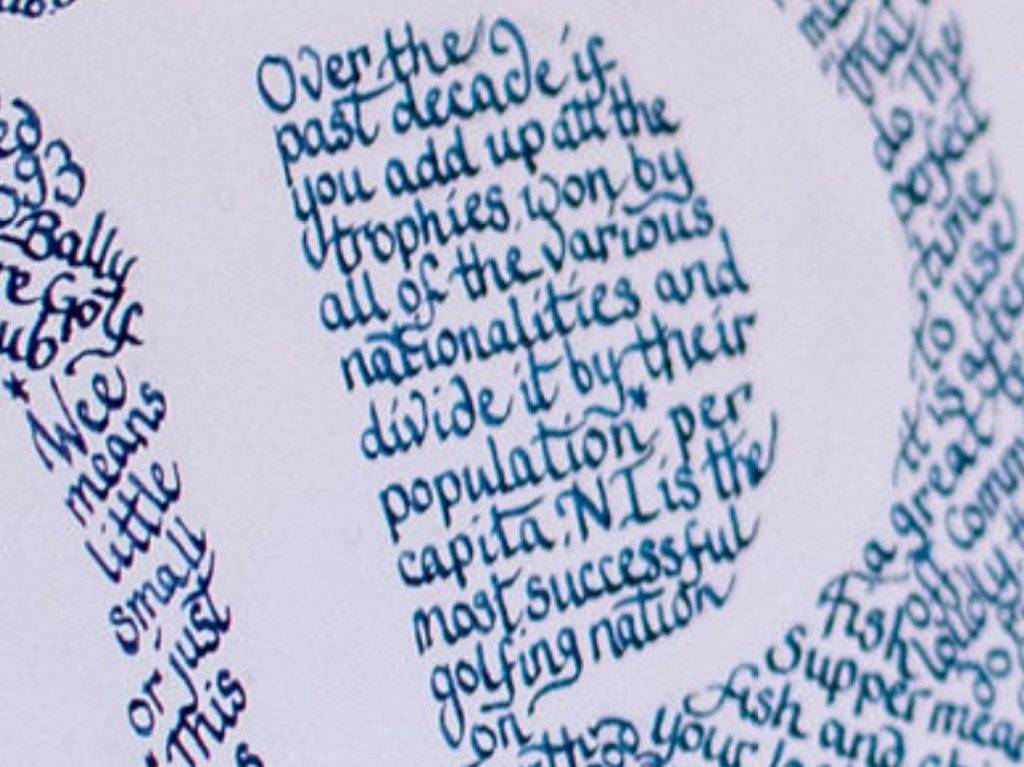 Over the
past decade if
you add up all the
trophies won by
all of the various
nationalities and
divide it by their
population per
capita, NI is the
most successful
golfing nation
on
Bally
Golf
* Wee
means
little
small
or just
This
that
do The
perfect
time
to use
it is after
a great
fish
supper
fish and
your